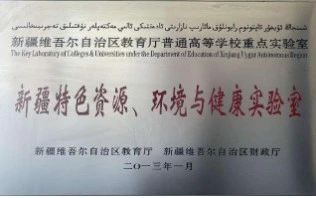 شىنجاڭ ئۇيغۇر ئاپتونوم رايونلۇق مائارىپ نازارىتى ئادەتتىكى ئالىي مەكتەپلەر نۇقتىلىق تەجرىبىخانىسى
新疆维吾尔自治区教育厅普通高等学校重点实验室
The Key Laboratory of Colleges & Universities under the Department of Education of Xinjiang Uygur Autonomous Region
新疆特色资源、环境与健康实验室
新疆维吾尔自治区教育厅 新疆维吾尔自治区财政厅
二〇一三年一月